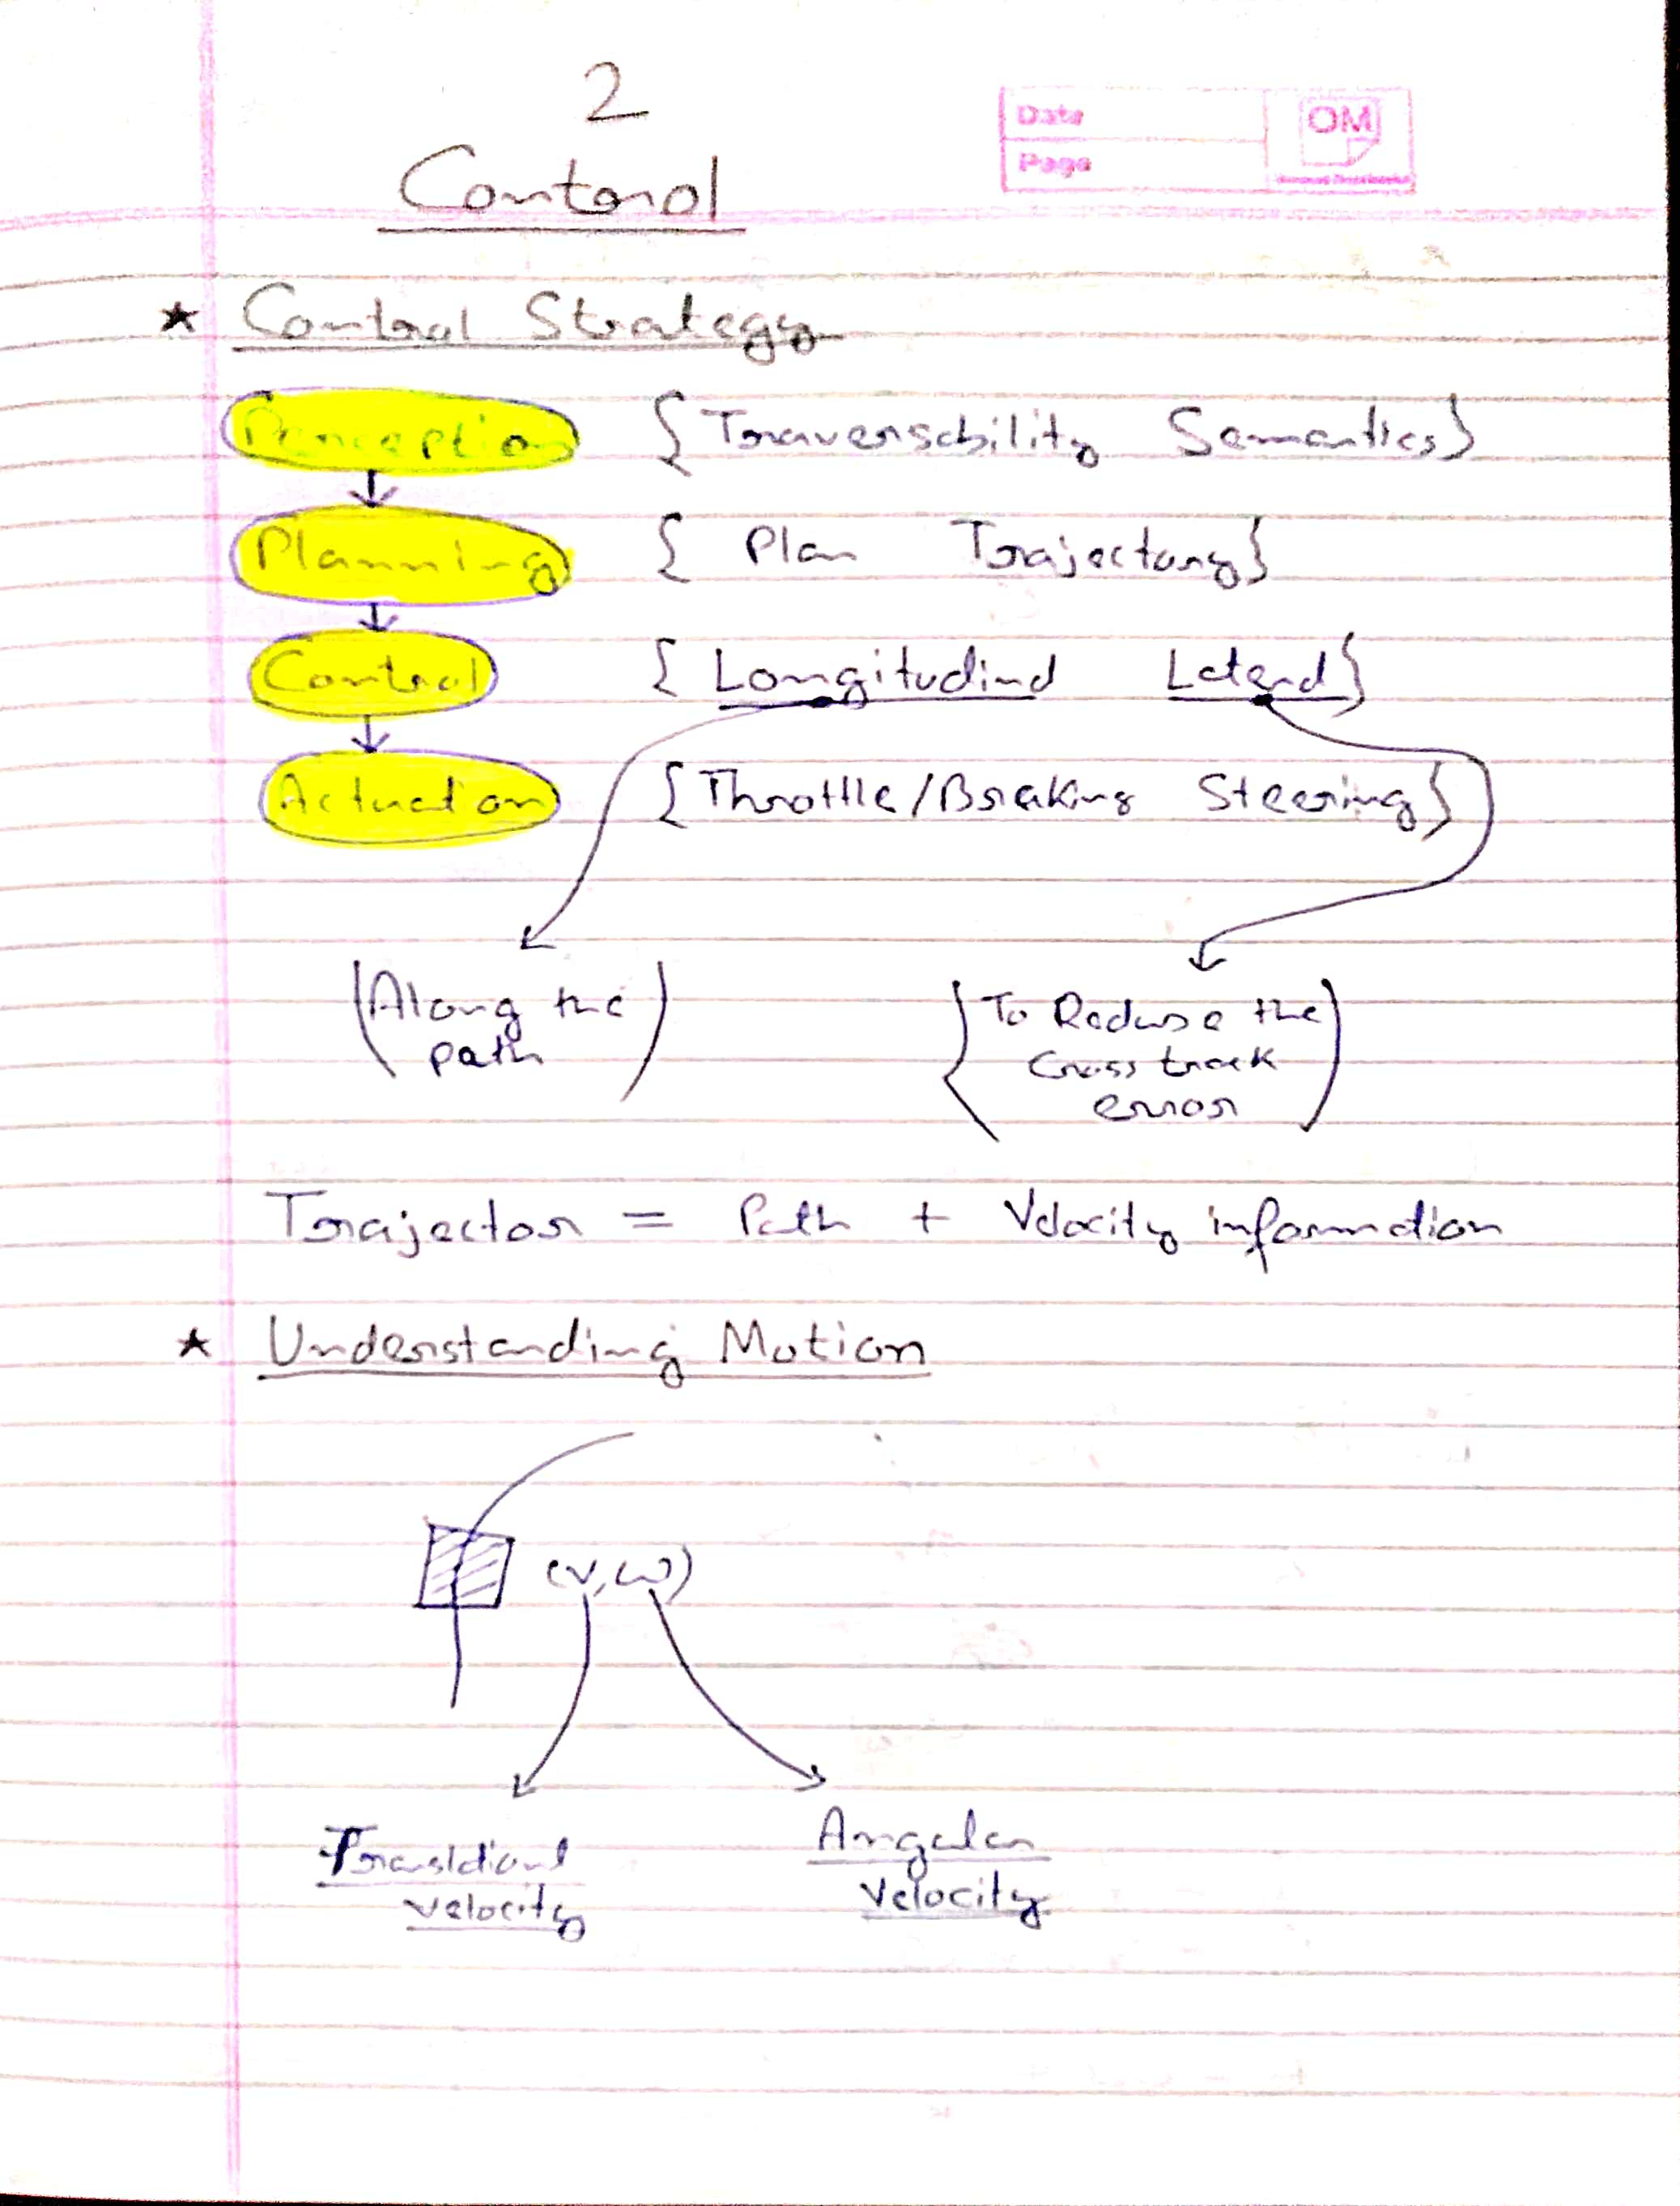 2
Control
Date
Page
OM
★ Control Strategy
Perception { Traversability Semantics }
Planning { Plan Trajectory }
Control { Longitudinal Lateral }
Actuation { Throttle/Braking Steering }
(Along the
path)
{ To Reduse the
Cross track
error )
Trajector = Path + Velocity information
★ Understanding Motion
(v, ω)
Angular
velocity
Traslational
velocity